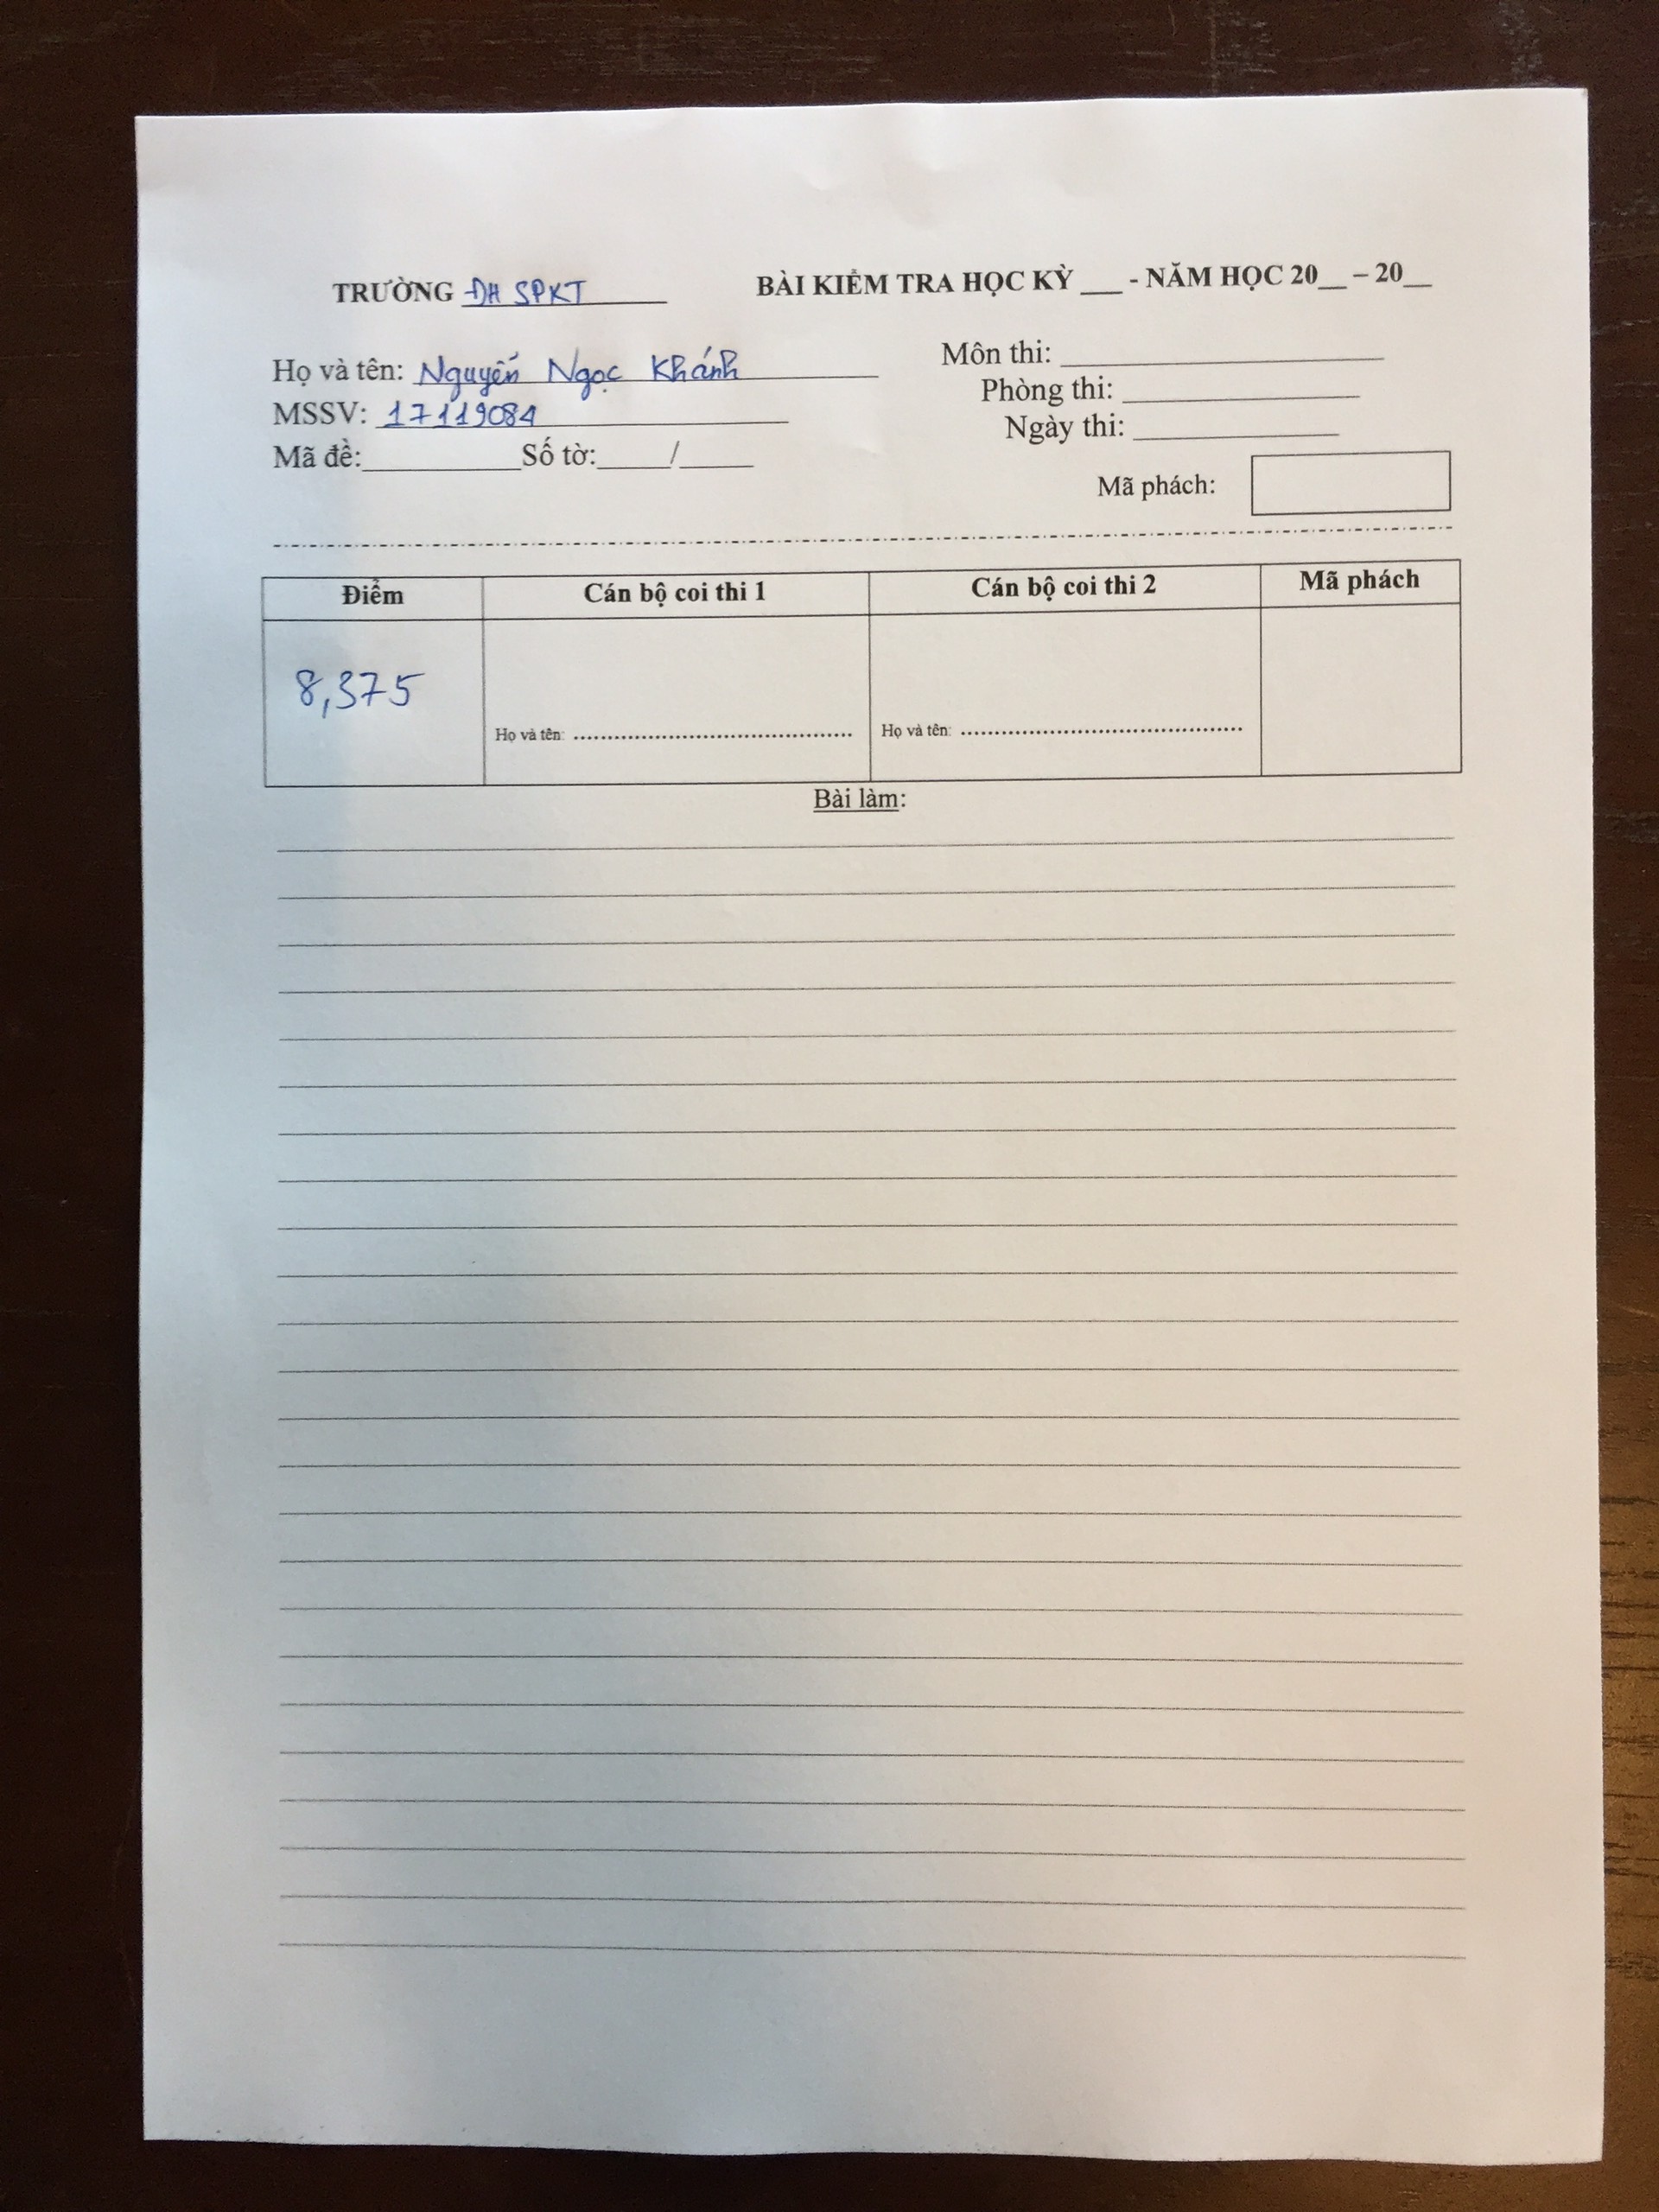 TRƯỜNG ĐH SPKT
BÀI KIỂM TRA HỌC KỲ ___ - NĂM HỌC 20__ – 20__
Họ và tên: Nguyễn Ngọc Khánh
MSSV: 17119084
Mã đề:__________Số tờ:_____/_____
Môn thi: ______________________
Phòng thi: ________________
Ngày thi: ______________
Mã phách:
Điểm Cán bộ coi thi 1 Cán bộ coi thi 2 Mã phách
8,375
Họ và tên: ........................................ Họ và tên: ........................................
Bài làm: